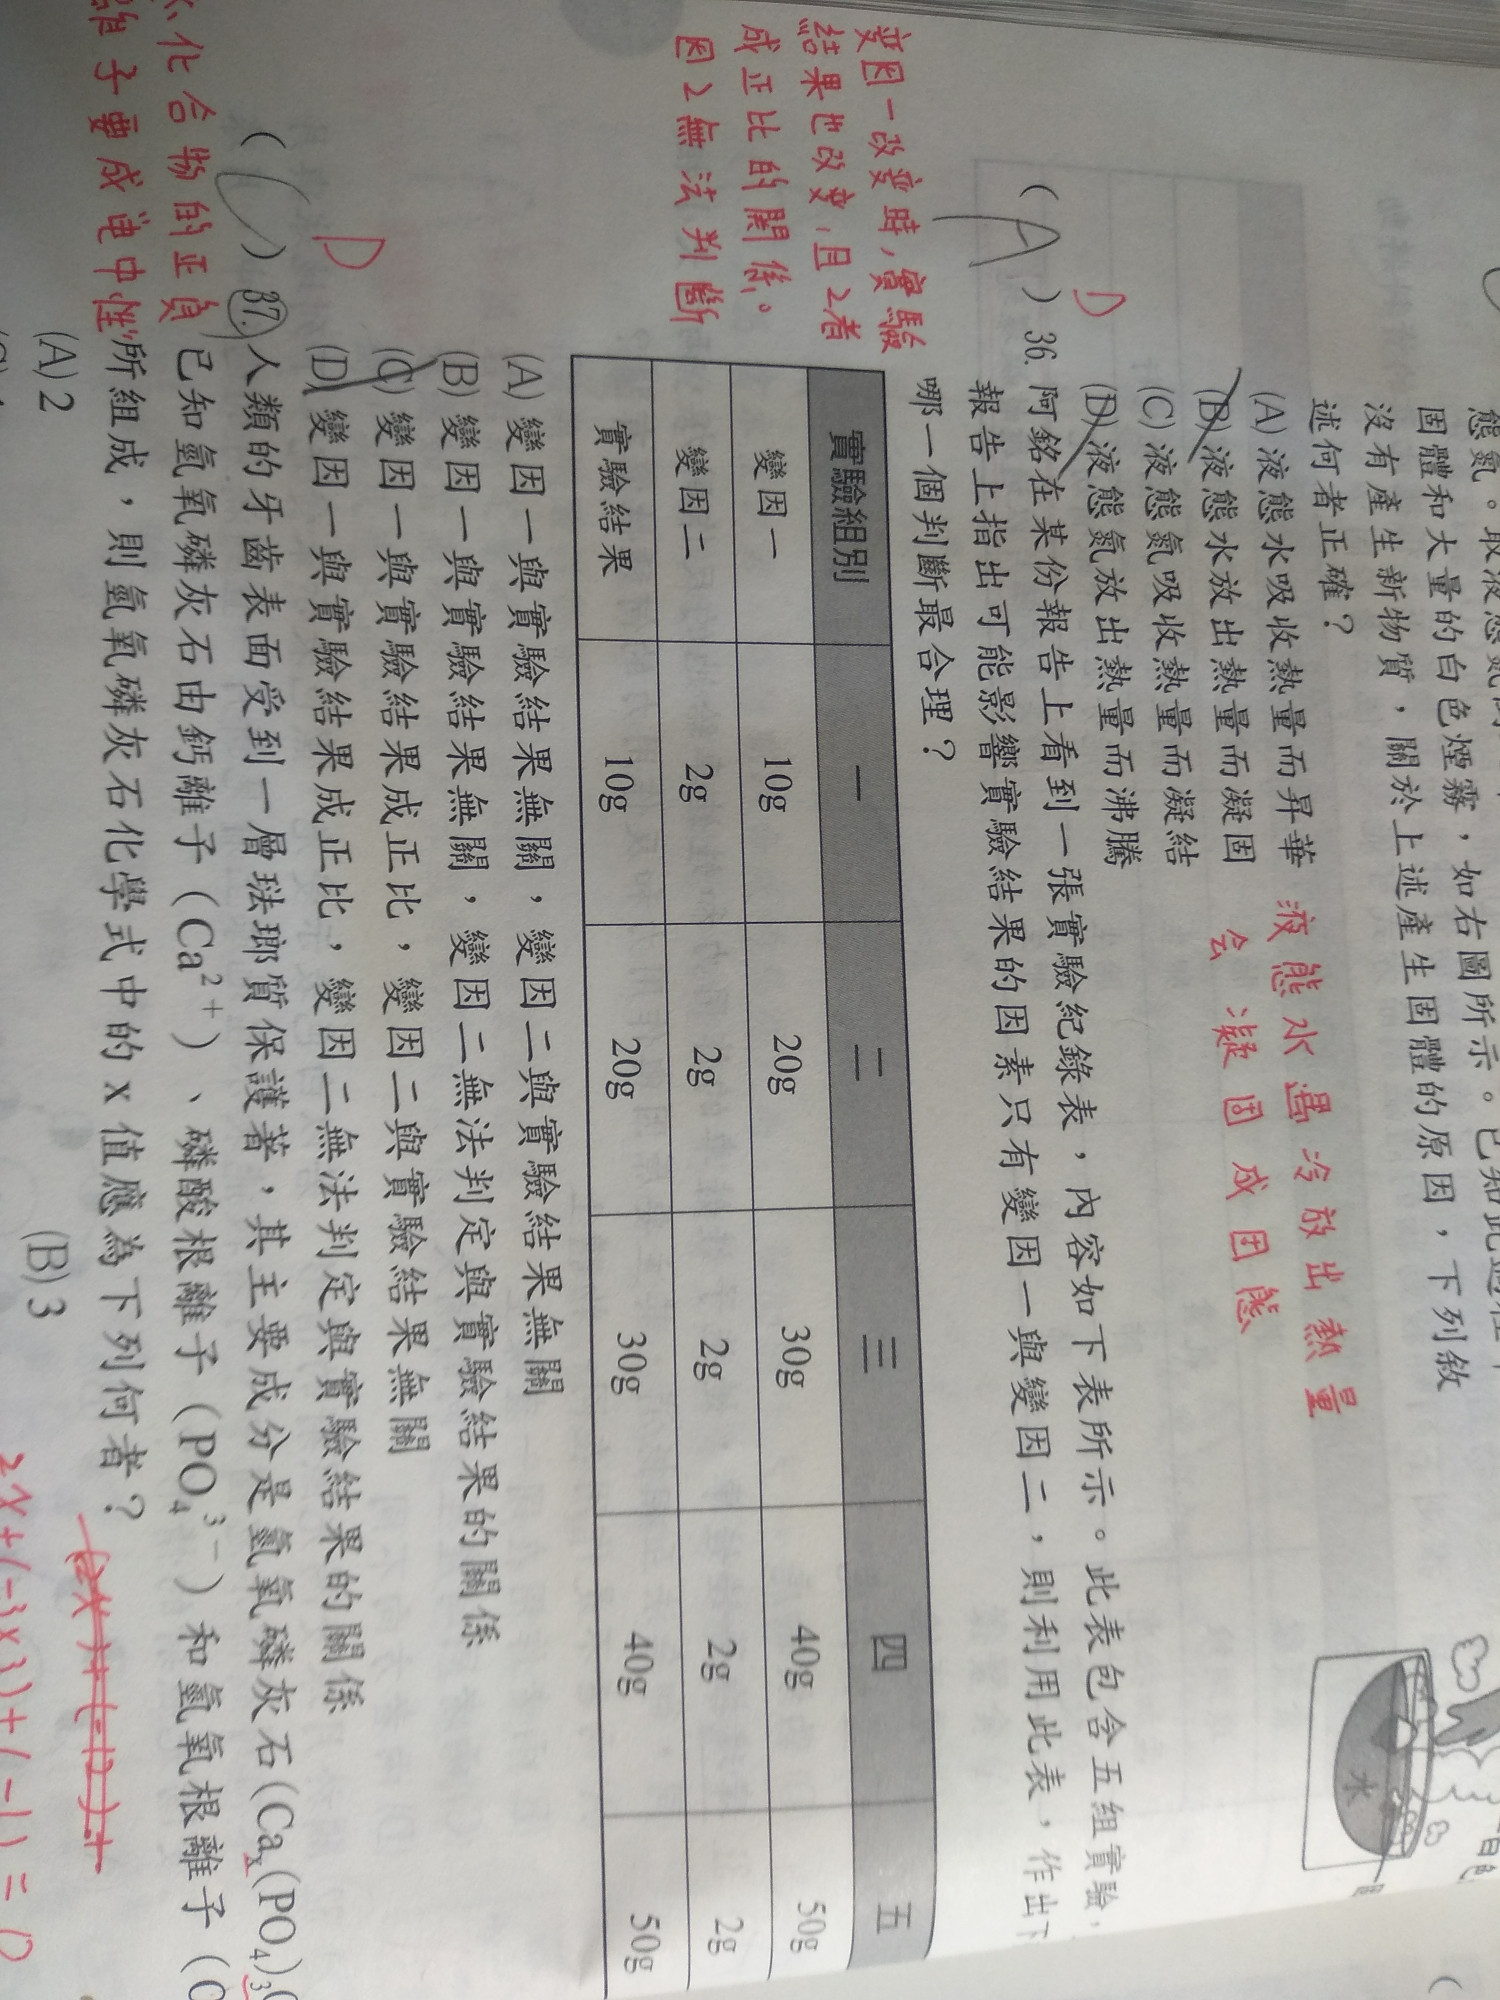 固體和大量的白色煙霧，如右圖所示。已知此過程中
沒有產生新物質，關於上述產生固體的原因，下列敘
述何者正確？
(A) 液態水吸收熱量而昇華
(B) 液態水放出熱量而凝固
(C) 液態氮吸收熱量而凝結
(D) 液態氮放出熱量而沸騰
液態水遇冷放出熱量
会凝固成固態
水
(A) 36. 阿銘在某份報告上看到一張實驗紀錄表，內容如下表所示。此表包含五組實驗，
報告上指出可能影響實驗結果的因素只有變因一與變因二，則利用此表，作出下
哪一個判斷最合理？
D
变因一改變時，實驗
結果也改变，且2者
成正比的関係。
因2無法判斷
實驗組別 一 二 三 四 五
變因一 10g 20g 30g 40g 50g
變因二 2g 2g 2g 2g 2g
實驗結果 10g 20g 30g 40g 50g
(A) 變因一與實驗結果無關，變因二與實驗結果無關
(B) 變因一與實驗結果無關，變因二無法判定與實驗結果的關係
(C) 變因一與實驗結果成正比，變因二與實驗結果無關
(D) 變因一與實驗結果成正比，變因二無法判定與實驗結果的關係
D
( ) 37. 人類的牙齒表面受到一層琺瑯質保護著，其主要成分是氫氧磷灰石(Caₓ(PO₄)₃
已知氫氧磷灰石由鈣離子（Ca²⁺）、磷酸根離子（PO₄³⁻）和氫氧根離子（
所組成，則氫氧磷灰石化學式中的 x 值應為下列何者？
化合物的正負
離子要成电中性
(A) 2 (B) 3
2X+(-3×3)+(-1)=0